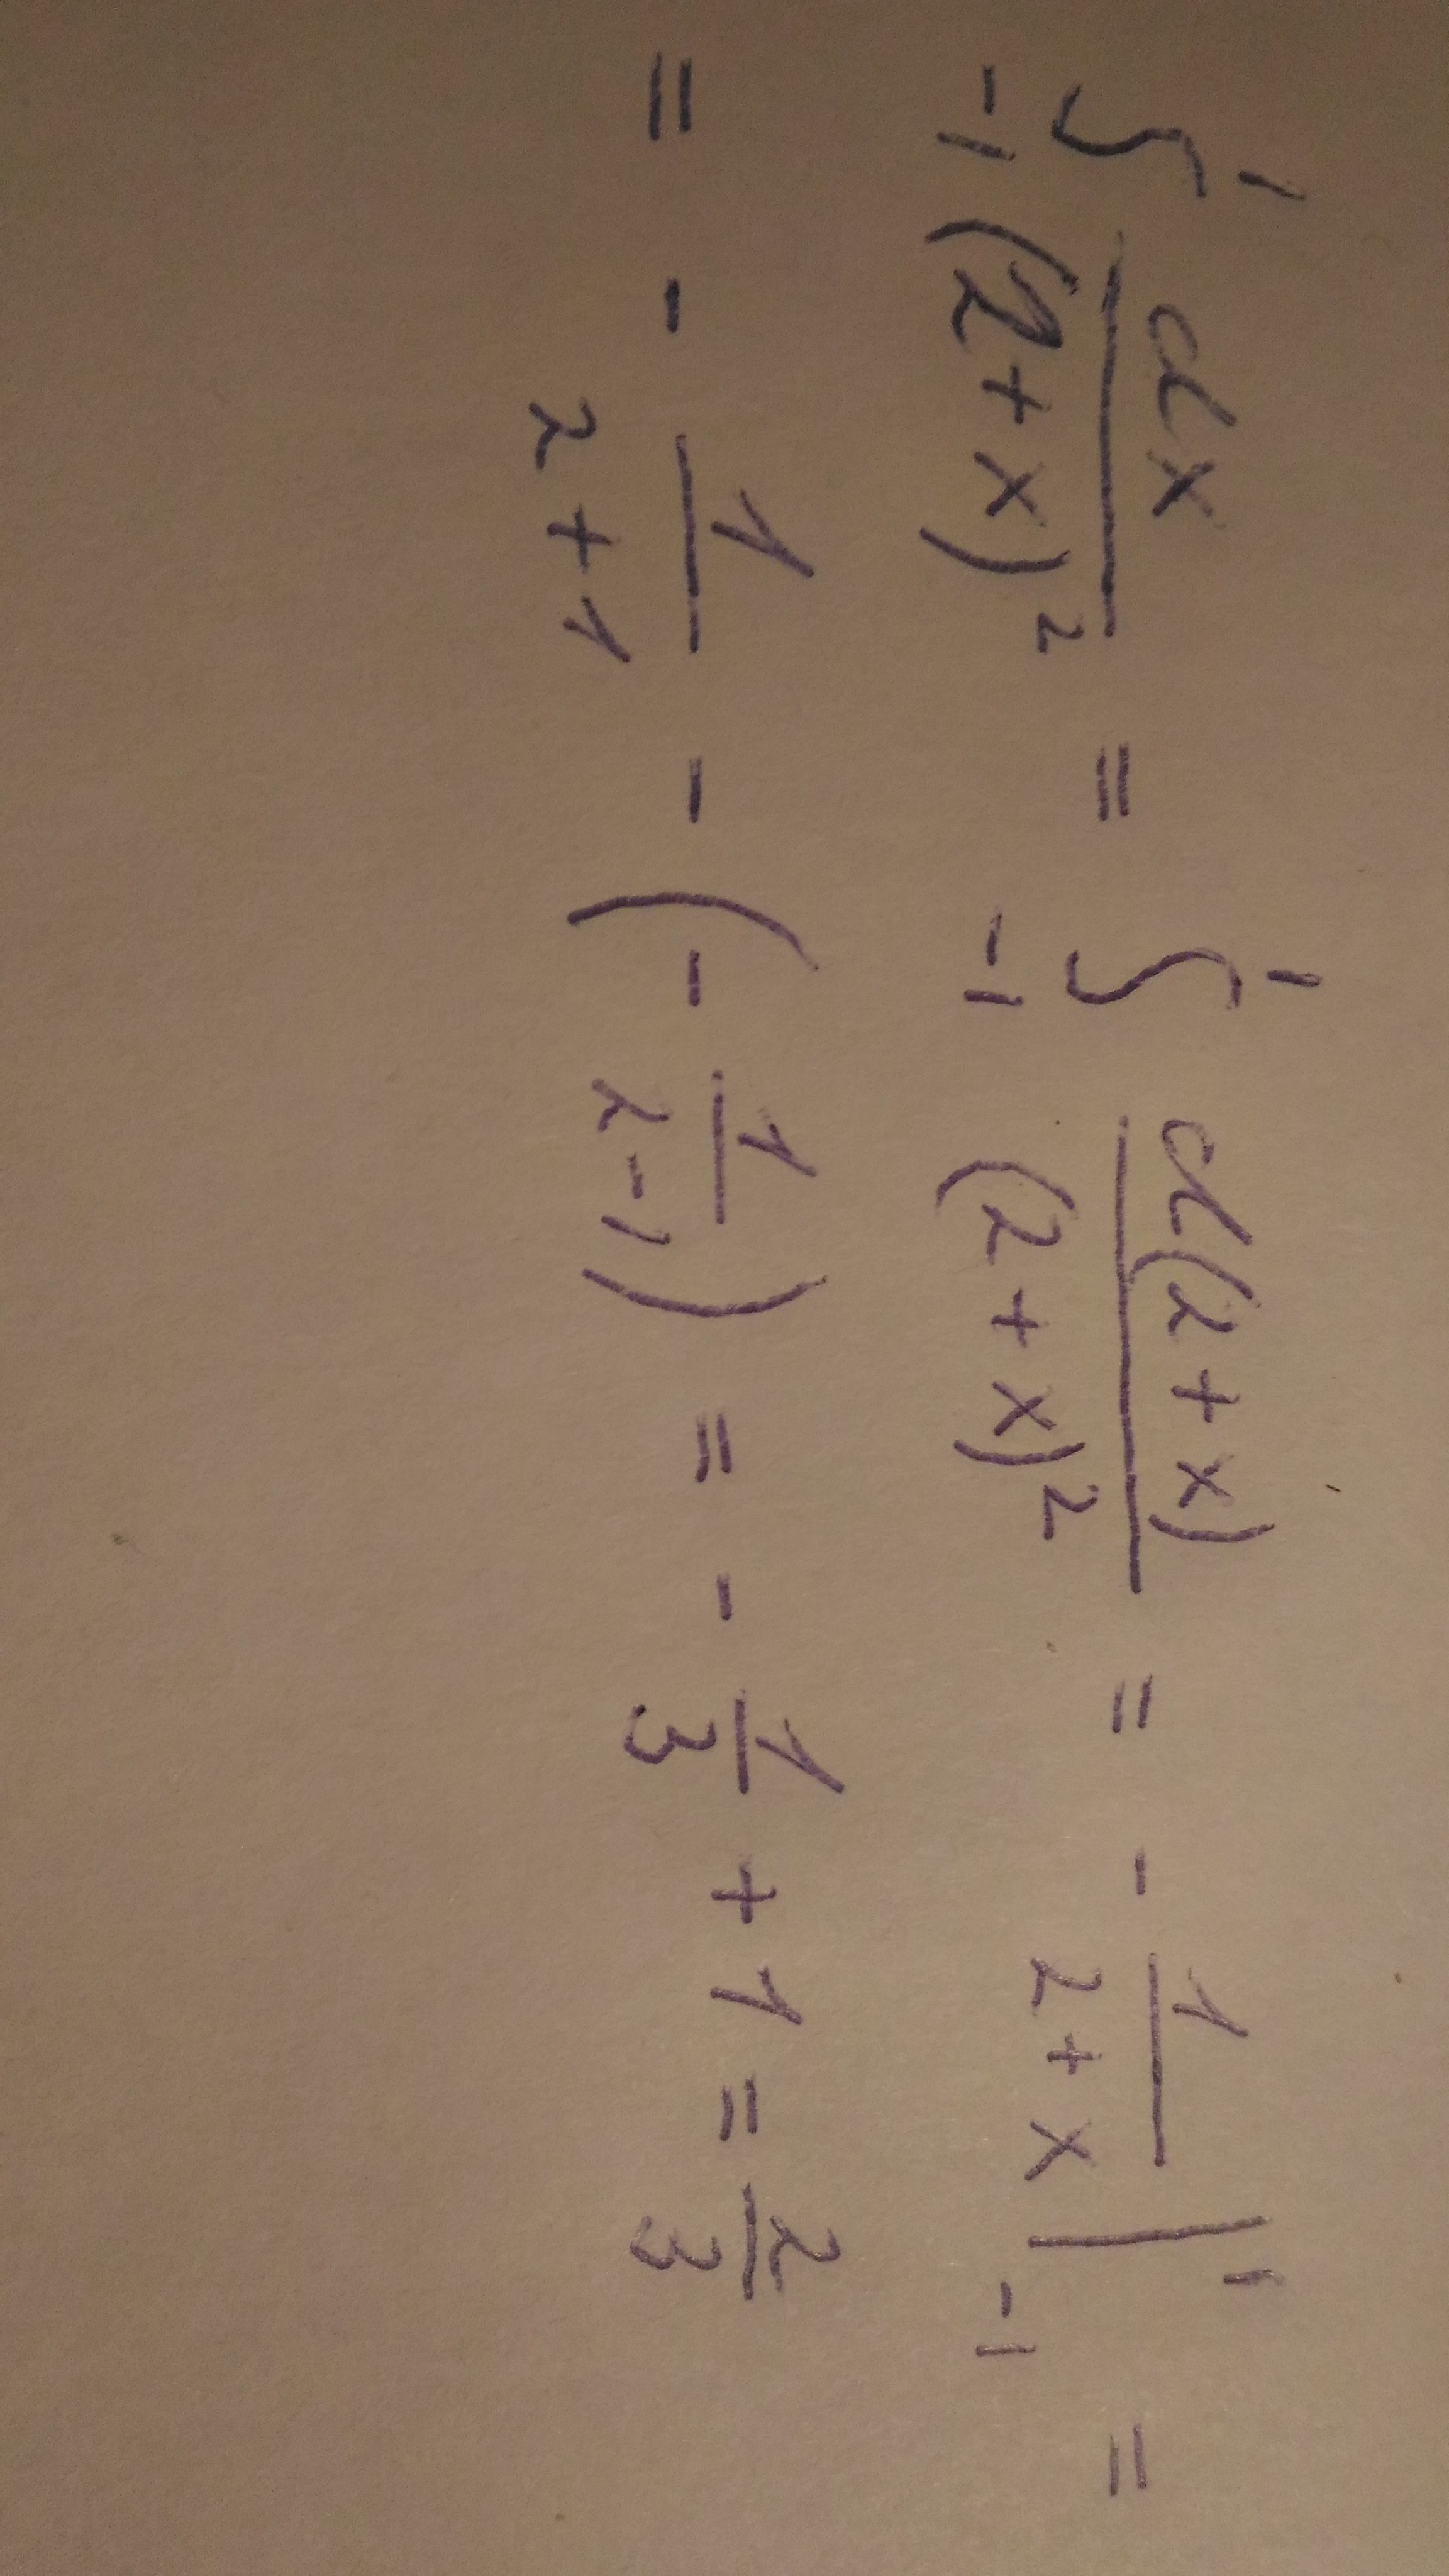 ∫_{-1}^{1} \frac{dx}{(2+x)^2} = ∫_{-1}^{1} \frac{d(2+x)}{(2+x)^2} = - \frac{1}{2+x} |_{-1}^{1} =
= - \frac{1}{2+1} - (- \frac{1}{2-1}) = - \frac{1}{3} + 1 = \frac{2}{3}